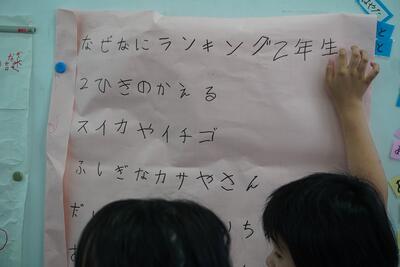 なぜなにランキング2年生
2ひきのかえる
スイカやイチゴ
ふしぎなカサやさん
だ
ち